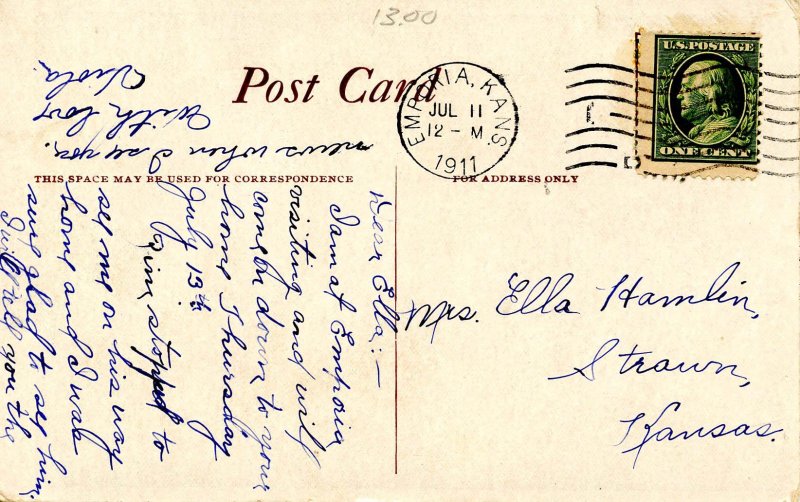 13.00
Post Card
THIS SPACE MAY BE USED FOR CORRESPONDENCE
FOR ADDRESS ONLY
EMPORIA, KANS.
JUL 11
12-M
1911
U.S. POSTAGE
ONE CENT
Dear Ella:-
I am at Emporia
visiting and will
come on down to your
home Thursday
July 13th
stopped to
see me on his way
home and I was
sure glad to see him.
I will tell you the
news when I see you.
With love
Viola.
Mrs. Ella Hamlin,
Strawn,
Kansas.